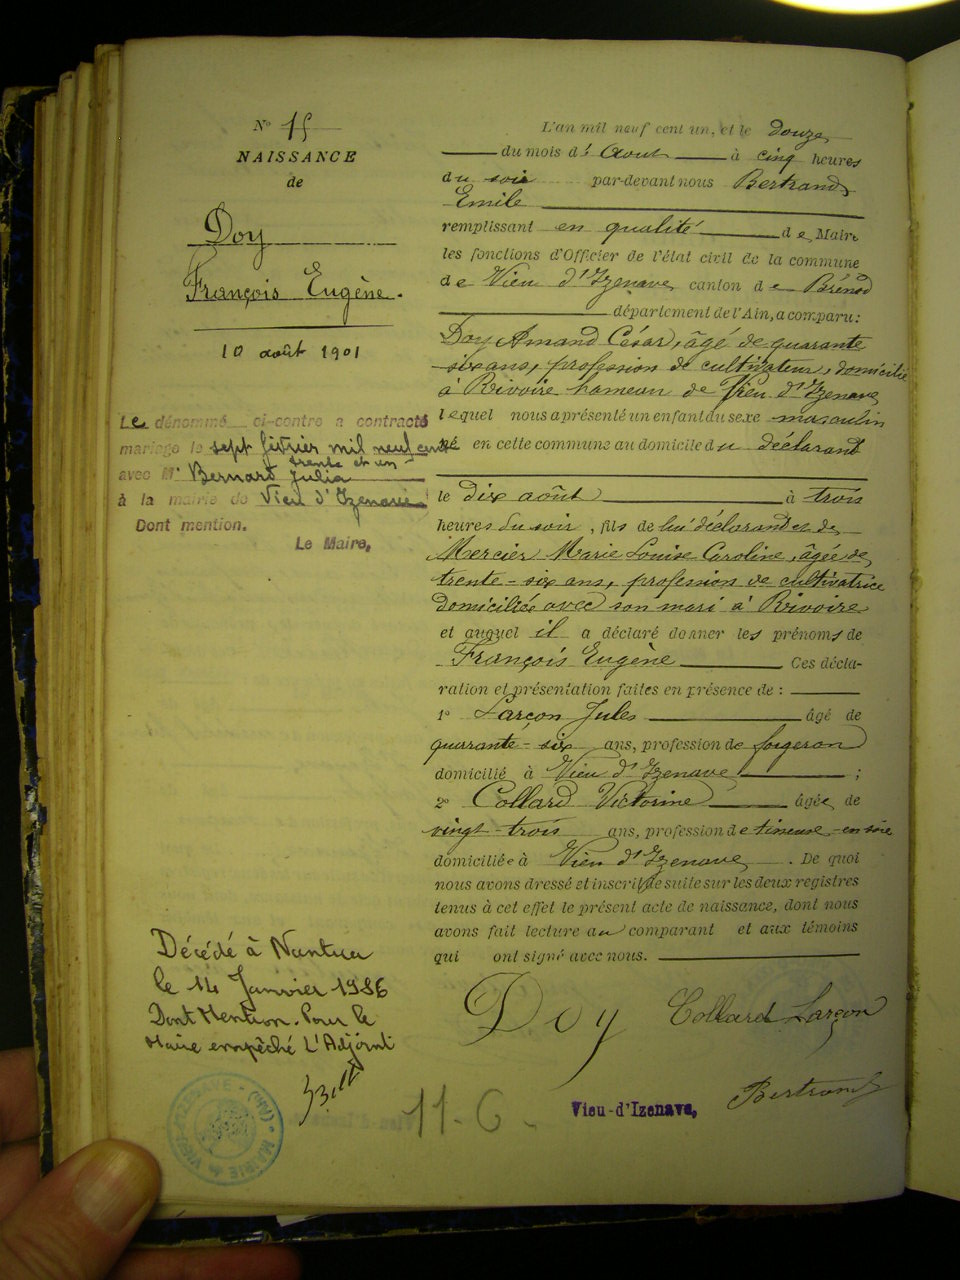 N° 15
NAISSANCE
de
Doy
François Eugène.
10 août 1901
Le dénommé ci-contre a contracté
mariage le sept février mil neuf cent
trente et un
avec M Bernard Julia
à la mairie de Vieu d'Izenave
Dont mention.
Le Maire,
Décédé à Nantua
le 14 Janvier 1986
Dont Mention. Pour le
Maire empêché L'Adjoint
MAIRIE de VIEU-D'IZENAVE - (AIN)
11-6-
L'an mil neuf cent un, et le douze
du mois d' Aout à cinq heures
du soir par-devant nous Bertrand
Emile
remplissant en qualité de Maire
les fonctions d'Officier de l'état civil de la commune
de Vieu d'Izenave canton de Brénod
département de l'Ain, a comparu :
Doy Amand César, âgé de quarante
six ans, profession de cultivateur, domicilié
à Rivoire hameau de Vieu d'Izenave
lequel nous a présenté un enfant du sexe masculin
né en cette commune au domicile du déclarant
le dix août à trois
heures du soir, fils de lui déclarant et de
Mercier Marie Louise Caroline, âgée de
trente-six ans, profession de cultivatrice
domiciliée avec son mari à Rivoire
et auquel il a déclaré donner les prénoms de
François Eugène Ces décla-
ration et présentation faites en présence de :
1° Larçon Jules âgé de
quarante-six ans, profession de forgeron
domicilié à Vieu d'Izenave ;
2° Collard Victorine âgée de
vingt-trois ans, profession de tisseuse-en soie
domiciliée à Vieu d'Izenave . De quoi
nous avons dressé et inscrit de suite sur les deux registres
tenus à cet effet le présent acte de naissance, dont nous
avons fait lecture au comparant et aux témoins
qui ont signé avec nous.
Doy Collard Larçon
Vieu-d'Izenave, Bertrand